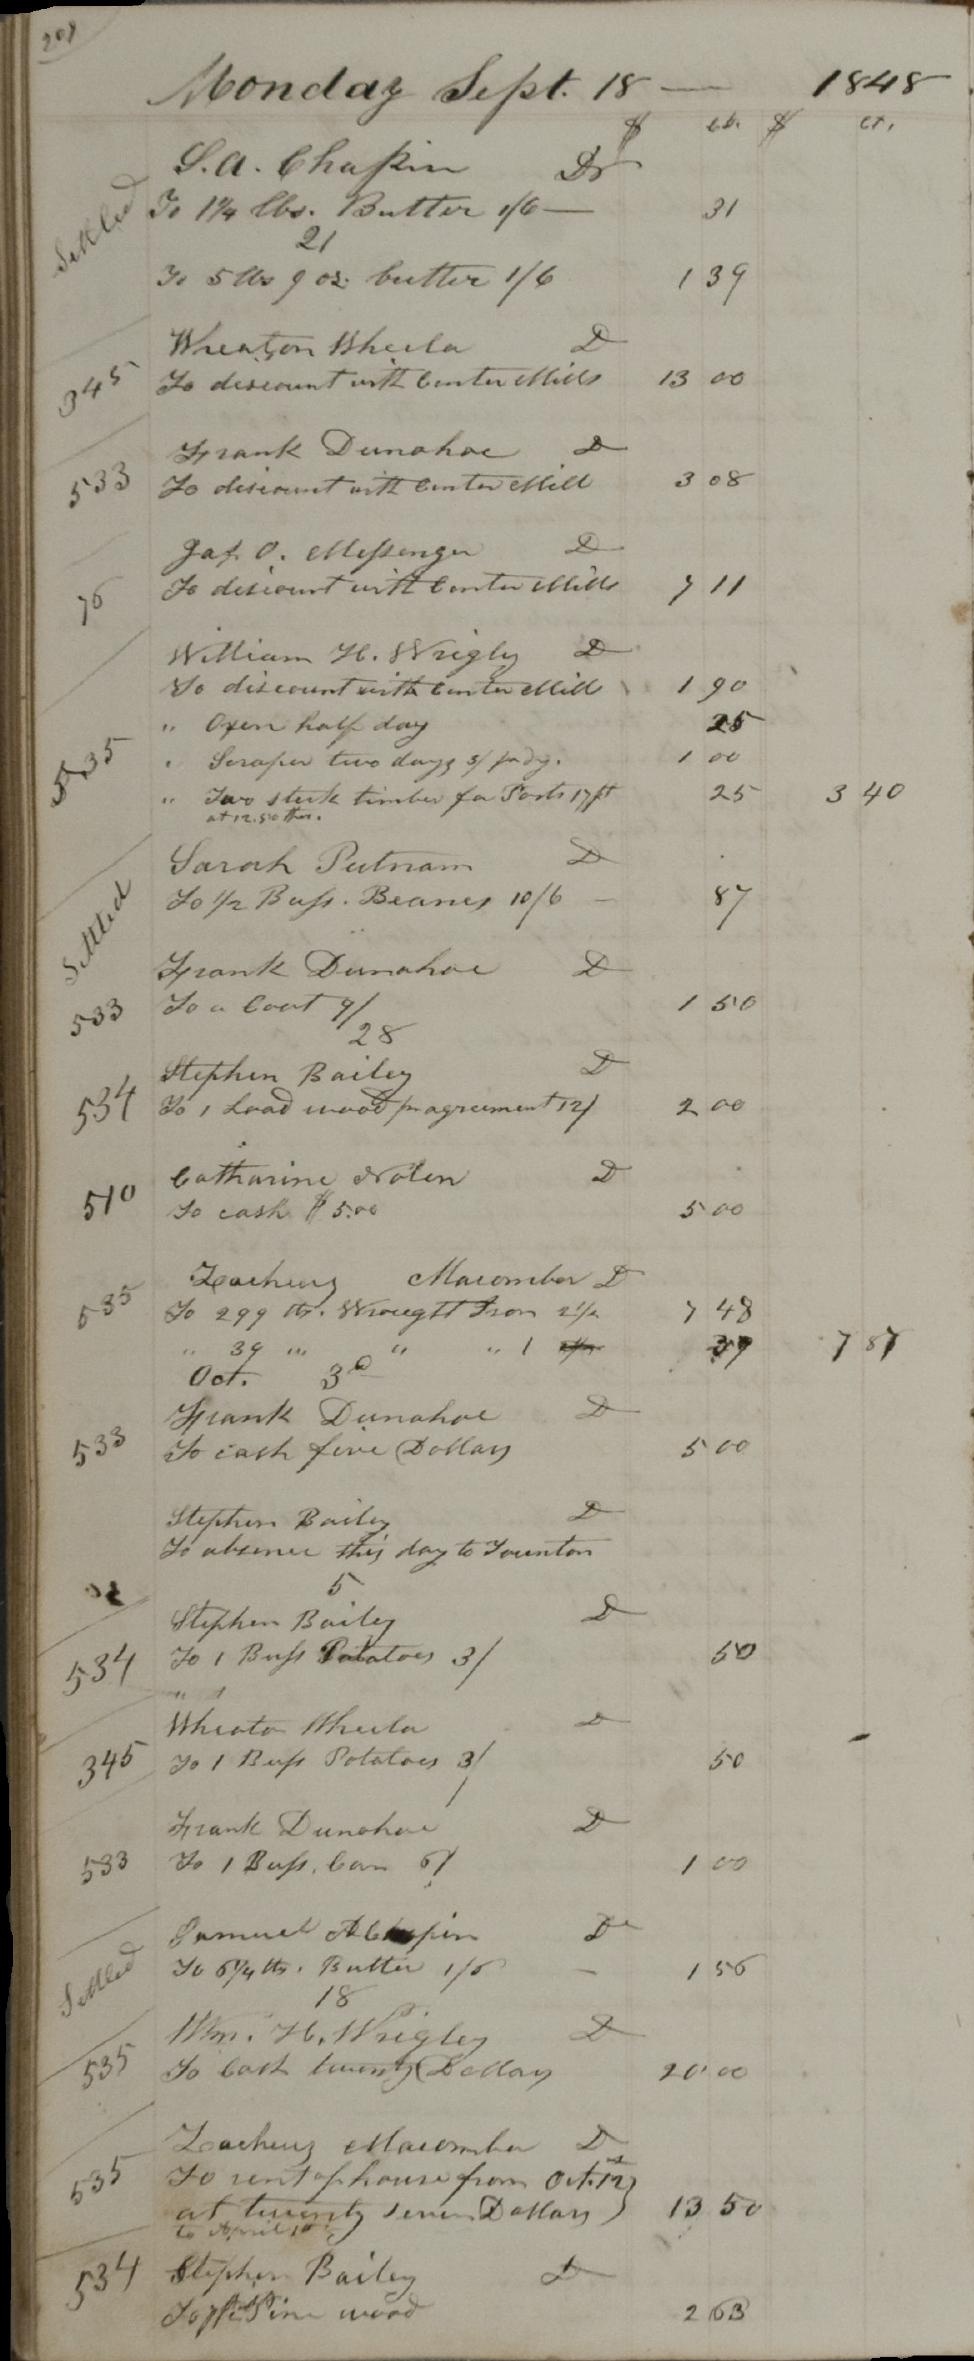 209
Monday Sept. 18 — 1848
$ ct. $ ct.
S. A. Chapin Dr
Settled
To 1 1/4 lbs. Butter 1/6 — 31
21
To 5 lbs 9 oz. butter 1/6 1 39
Wheaton Wheela D
345 To discount with Center Mills 13 00
Frank Dunahoe D
533 To discount with Center Mill 3 08
Jas. O. Messenger D
76 To discount with Center Mills 7 11
William H. Wrigly D
To discount with Center Mill 1 90
" Oxen half day 25
535 " Scraper two days 3/ pr dy. 1 00
" Two stick timber for Posts 17 ft 25 3 40
at 12.50 thou.
Sarah Putnam D
Settled To 1/2 Bush. Beanes 10/6 — 87
Frank Dunahoe D
533 To a Coat 9/ 1 50
28
Stephen Bailey D
534 To 1 Load wood pr agreement 12/ 2 00
Catharine Nolen D
510 To cash $5.00 5 00
Zacheus Macomber D
535 To 299 lbs. Wrought Iron 2 1/2 7 48
" 39 " " " 1 39 7 87
Oct. 3d
Frank Dunahoe D
533 To cash five Dollars 5 00
Stephen Bailey D
To absence this day to Taunton
5
Stephen Bailey D
534 To 1 Bush Potatoes 3/ 50
" 1
Wheaton Wheela D
345 To 1 Bush Potatoes 3/ 50
Frank Dunahoe D
533 To 1 Bush. Corn 6/ 1 00
Samuel A Chapin Dr
Settled To 6 1/4 lbs. Butter 1/6 — 1 56
18
Wm. H. Wrigley D
535 To Cash twenty Dollars 20 00
Zacheus Macomber D
535 To rent of house from Oct. 1st
at twenty seven Dollars 13 50
to April 1st
534 Stephen Bailey D
Pine wood 2 63